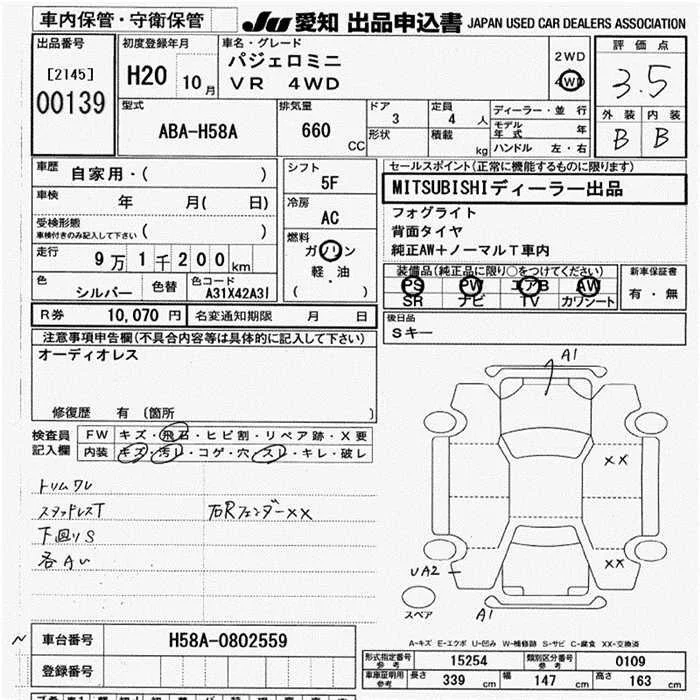 車内保管・守衛保管
JU 愛知 出品申込書 JAPAN USED CAR DEALERS ASSOCIATION
出品番号
[2145]
00139
初度登録年月
H20 10月
車名・グレード
パジェロミニ
VR 4WD
2WD
4WD
評価点
3.5
外装 内装
B B
型式
ABA-H58A
排気量
660 CC
ドア
3
形状
定員
4 人
積載
kg
ディーラー・並行
モデル年式 年
ハンドル 左・右
車歴
自家用・( )
車検
年 月( 日)
受検形態
車検付きのみ記入して下さい ( )
走行
9万1千200km
色
シルバー
色替
色コード
A31X42A31
シフト
5F
冷房
AC
燃料
ガソリン
軽・油
( )
セールスポイント(正常に機能するものに限ります)
MITSUBISHIディーラー出品
フォグライト
背面タイヤ
純正AW+ノーマルT車内
装備品(純正品に限り○をつけてください)
PS PW エアB AW
SR ナビ TV カワシート
新車保証書
有・無
R券 10,070 円 名変通知期限 月 日
後日品
Sキー
注意事項申告欄(不具合内容等は具体的に記入して下さい)
オーディオレス
修復歴 有 (箇所 )
検査員記入欄
FW キズ・飛石・ヒビ割・リペア跡・X要
内装 キズ・汚レ・コゲ・穴・スレ・キレ・破レ
トリムワレ
スタッドレスT 右Rフェンダーxx
下回りS
各Aい
A1
XX
XX
UA2
A1
スペア
A-キズ E-エクボ U-凹み W-補修跡 S-サビ C-腐食 XX-交換済
車台番号 H58A-0802559
登録番号
形式指定番号 参考 15254 類別区分番号 参考 0109
車庫証明用 参考 長さ 339 cm 幅 147 cm 高さ 163 cm